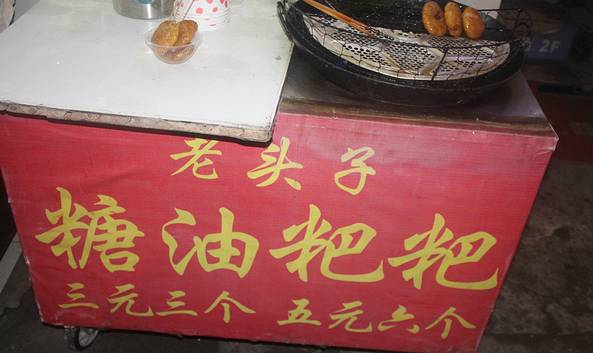 2F
老头子
糖油粑粑
三元三个 五元六个